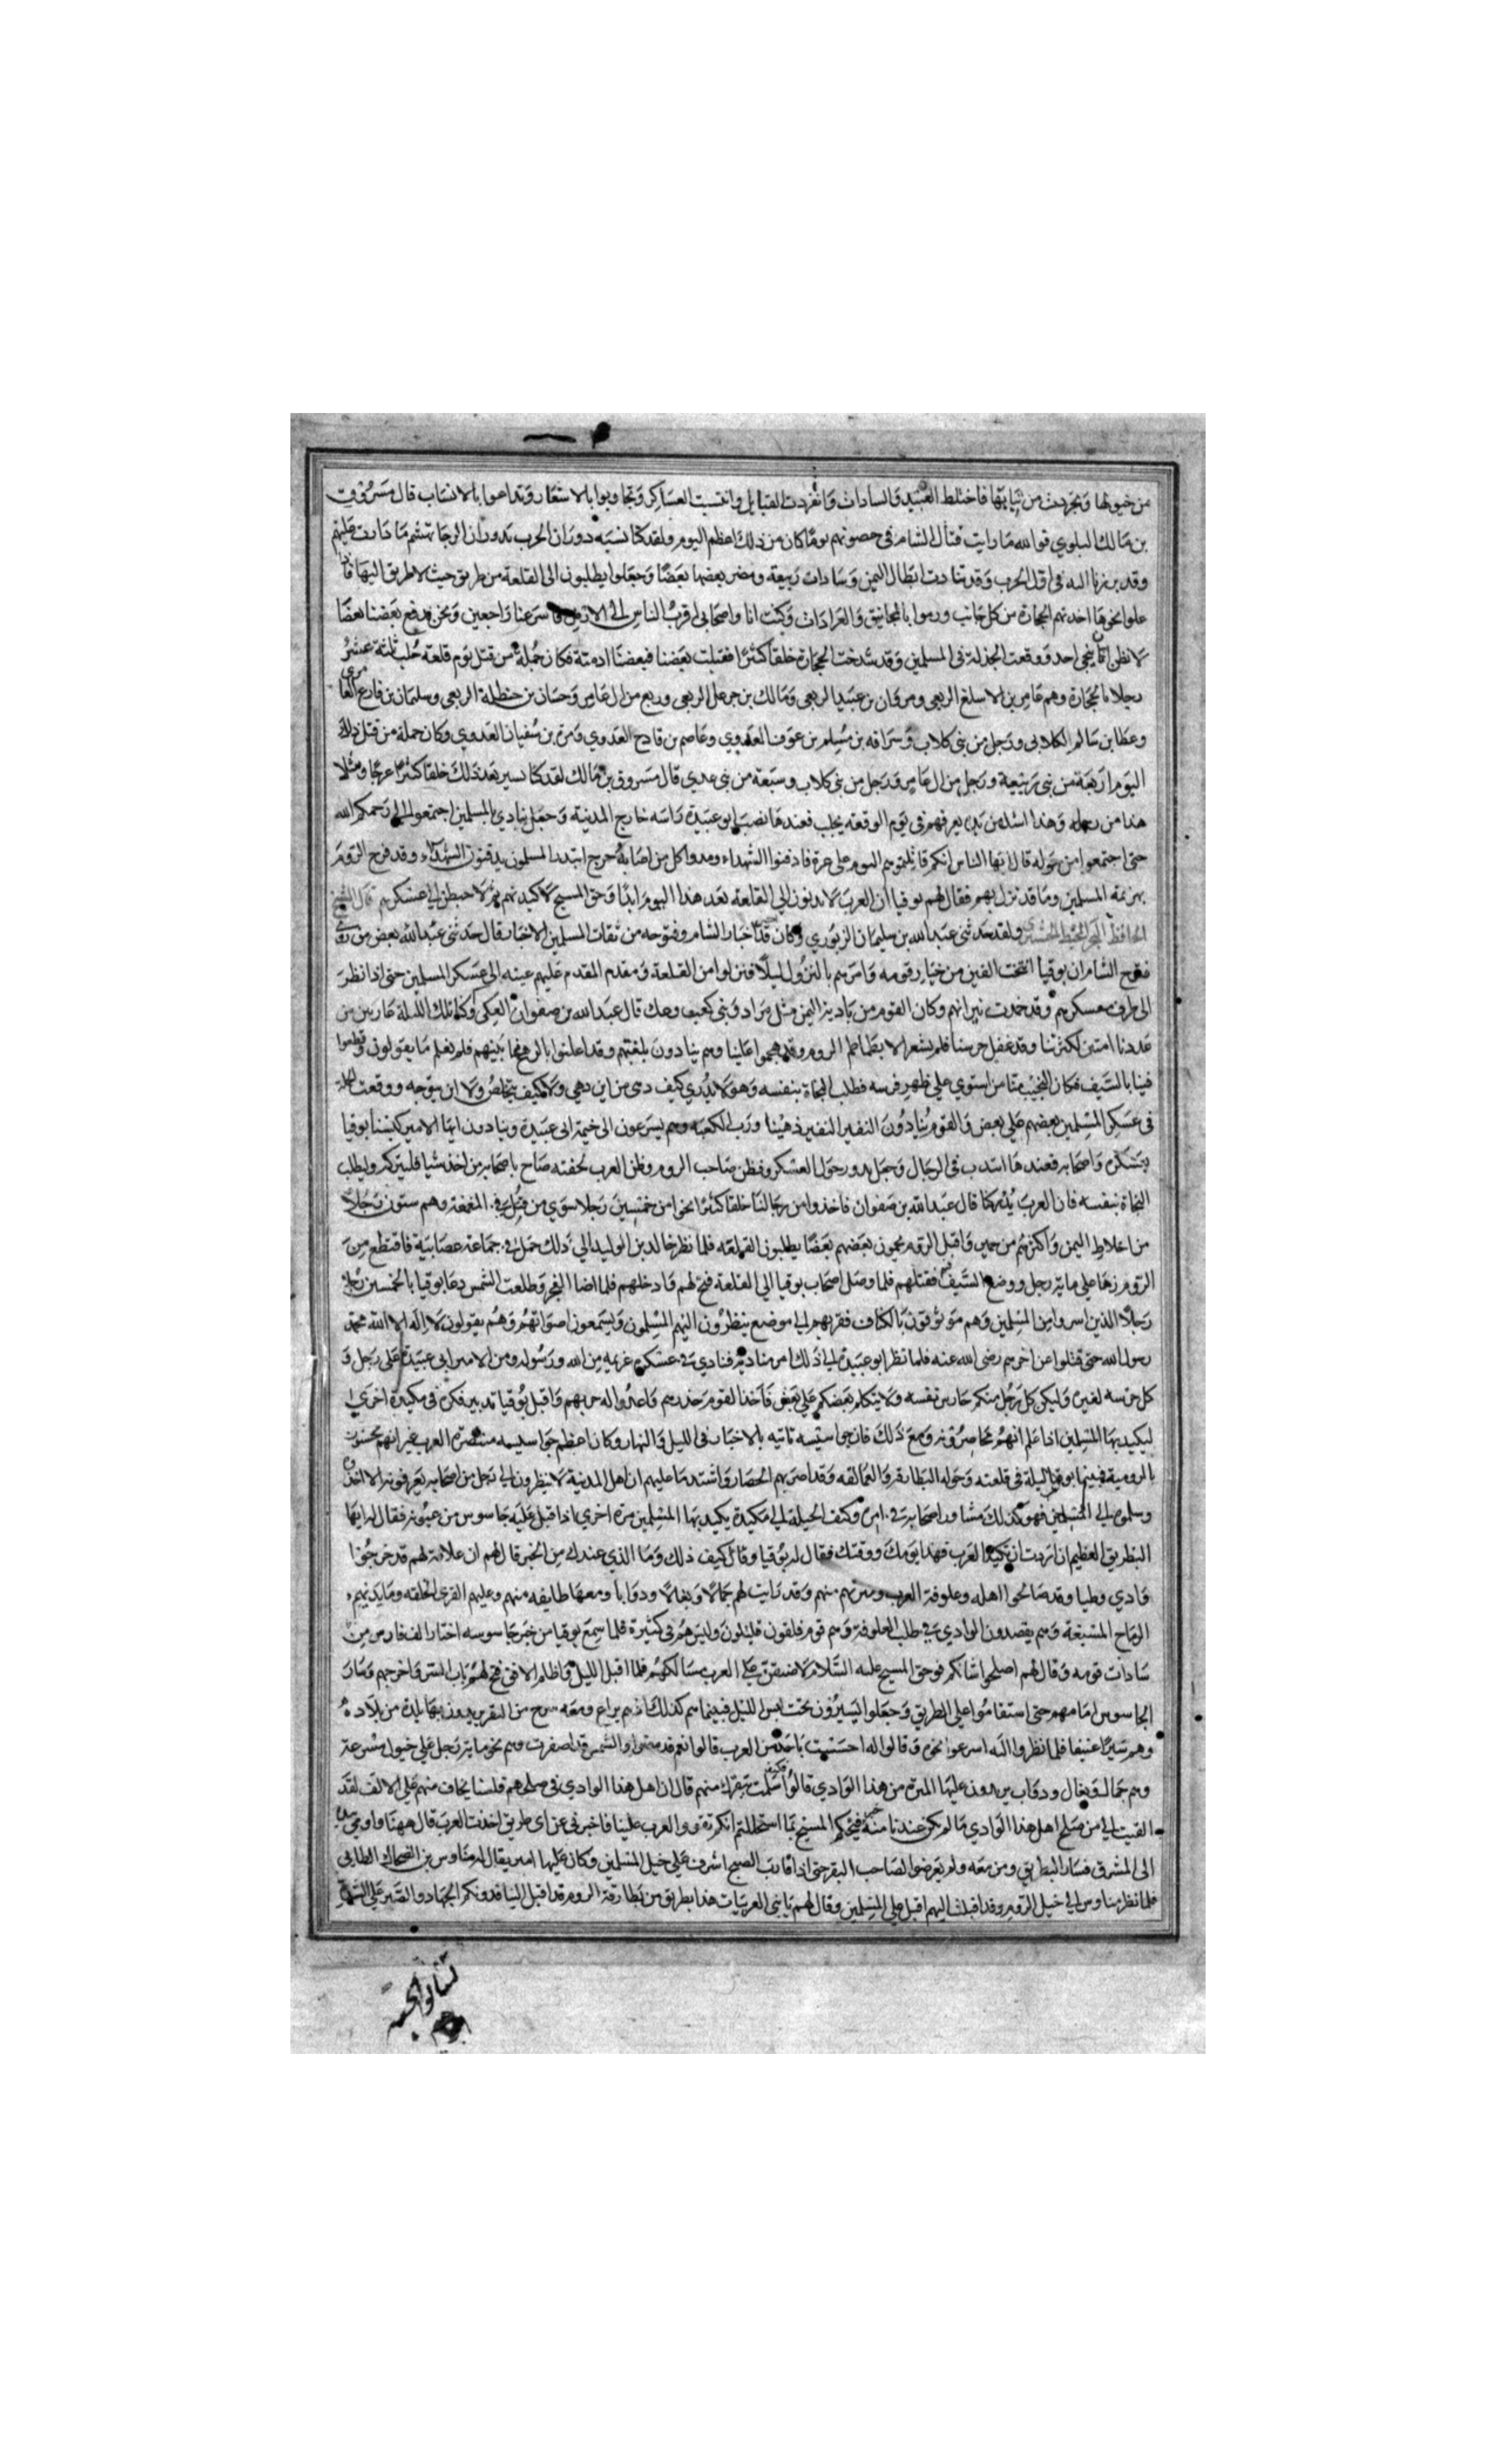 من خيولها وتجردت من ثيابها فاختلط العبيد والسادات وانفردت القبايل وانتسبت العساكر وتجاوبوا بالاشعار وتداعوا بالانساب قال مسروق
بن مالك البلوي فوالله ما رايت قتال الشام في حصونهم يوما كان من ذلك اعظم اليوم ولقد كنا نشبه دوران الحرب بدوران الرحا
وقد برزنا اليه في اول الحرب وقد تنادت ابطال اليمن وسادات ربيعة ومضر بعضها بعضا وجعلوا يطلبون الى القلعة من طريق حيث لا طريق اليها
علوا نحوها اخذتهم الحجارة من كل جانب ورموا بالمجانيق والعرادات وكنت انا واصحابي اقرب الناس الى الارض فاسرعنا راجعين ونحن يدفع بعضنا بعضا
لا نظن ان ينجى احد ووقعت الخذلة في المسلمين وقد شدخت الحجارة خلقا كثيرا فقتلت بعضنا فكان جملة من قتل يوم قلعة حلب ثلثة عشر
رجلا بالحجارة وهم عامر بن الاسلغ الربعي ومروان بن عبيد الربعي ومالك بن جرعل الربعي وربع من ال عامر وحسان بن حنظلة الربعي وسلمان بن فارع
وعطا بن سالم الكلابي ورجل من بني كلاب وسراقه بن مسلم بن عوف العدوي وعاصم بن قادح العدوي ومرة بن سفيان العدوي وكان جملة من قتل ذلك
اليوم اربعة من بني ربيعة ورجل من ال عامر ورجل من بني كلاب وسبعة من بني عدي قال مسروق بن مالك لقد كنا نسير بعد ذلك خلقا كثيرا عرجا
يعرفهم في يوم الوقعه بحلب فعندها نصب ابو عبيدة راسه خارج المدينة وجعل ينادي بالمسلمين اجتمعوا الي رحمكم الله
حتى اجتمعوا من حوله قال ايها الناس انكم قاتلتموهم اليوم على غرة فادفنوا الشهداء ومدوا كل من اصابه جرح ابتدر المسلمون يدفنون الشهداء وقد فرح الروم
بهزيمة المسلمين وما قد نزل بهم فقال لهم يوقيا ان العرب لا يدنون الي القلعة بعد هذا اليوم ابدا وحق المسيح لاكيدنهم قال الشيخ
الحافظ ولقد حدثني عبد الله بن سليمان الزبوري وكان اخبار الشام وفتوحه من ثقات المسلمين الاخبار قال حدثني عبد الله بعض من روى
فتوح الشام ان يوقيا انتخب الفين من خيار قومه وامرهم بالنزول ليلا فنزلوا من القلعة ومقدم المقدم عليهم عينه الى عسكر المسلمين حتى اذا نظر
الى طرف معسكرهم وقد خمدت نيرانهم وكان القوم من بادية اليمن مثل مراد وبني كعب وعك قال عبد الله بن صفوان العكى وكنا تلك الليلة
عددنا امنين لكثرتنا وقد غفل حرسنا فلم يشعر الا بطماطم الروم وقد هجموا علينا وهم ينادون بلغتهم وقد اعلنوا فيما بينهم فلم نعلم ما يقولون
فينا بالسيف فكان النجيب منا من استوي على ظهر فرسه فطلب النجاة بنفسه وهو لا يدري كيف دهى من اين دهي ولا كيف يخلص ولا اين يتوجه ووقعت
في عسكر المسلمين بعضهم على بعض والقوم ينادون النفير النفير دهينا ورب الكعبة وهم يسرعون الى خيمة ابي عبيدة وينادون ايها الامير كبسنا يوقيا
بعسكره واصحابه فعندها انتدب في الرجال وجعل يدور حول العسكر وفظن صاحب الروم وظن العرب لحقته صاح باصحابه من اخذ شيا فليتركه وليطلب
النجاة بنفسه فان العرب قال عبد الله بن صفوان فاخذوا من رجالنا خلقا كثيرا نحوا من خمسين رجلا سوى من قتل في المعمعة وهم ستون رجلا
من اخلاط اليمن واكثرهم من حمير واقبل الروم يحمون بعضهم بعضا يطلبون القلعه فلما نظر خالد بن الوليد الي ذلك حمل في جماعة فاقتطع من
الروم زها على ماية رجل ووضع السيف فيهم فقتلهم فلما وصل اصحاب يوقيا الي القلعة فتح لهم وادخلهم فلما اضا الفجر وطلعت الشمس دعا يوقيا بالخمسين
رجلا الذين اسروا من المسلمين وهم موثوقون بالكتاف فقربهم الى موضع ينظرون اليهم المسلمون ويسمعون اصواتهم وهم يقولون لا اله الا الله محمد
رسول الله حتى قتلوا عن اخرهم رضى الله عنه فلما نظر ابو عبيدة الى ذلك امر مناديه فنادي في عسكره عزيمة من الله ورسوله ومن الامير ابي عبيدة على رجل
كل حرسه لغيره وليكن كل رجل منكم حارس نفسه ولا يتكلم بعضكم على بعض فاخذ القوم حذرهم واعدوا اله حربهم واقبل يوقيا تدبير فكره في مكيدة اخرى
ليكيد بها المسلمين اذا علم انهم محاصروه ومع ذلك فان جواسيسه تاتيه بالاخبار في الليل والنهار وكان اعظم جواسيسه متنصرة العرب غير انهم يحسنون
بالرومية فبينما يوقيا ليلة في قلعته وحوله البطارقة والعمالقه وقد اضر بهم الحصار واشتد ما عليهم ان اهل المدينة لا ينظرون الى رجل من اصحابه يعرفونه الا اخذوه
وسلموه الى المسلمين فهو كذلك مشاور اصحابه في امره وكيف الحيلة الى مكيدة يكيد بها المسلمين مرة اخري اذا قبل عليه جاسوس من عيونه فقال له ايها
البطريق العظيم ان اردت ان تكيد العرب فهذا يومك ووقتك فقال له يوقيا وقال كيف ذلك وما الذي عندك من الخبر قال لهم ان علافة لهم قد خرجوا
وادي بطيا وقد صالحوا اهله وعلوفة العرب وميرتهم منهم وقد رايت لهم جمالا وبغالا ودوابا ومعها طايفه منهم وعليهم
الرماح المشبعة وهم يقصدون الوادي في طلب العلوفة وهم قوم قليلون وليس هم في كثيرة فلما سمع يوقيا من خبر جاسوسه اختار الف فارس من
سادات قومه وقال لهم اصلحوا شانكم فوحق المسيح عليه السلام لاضيقن على العرب مسالكهم فلما اقبل الليل واظلم الافق فتح لهم باب السر واخرجهم وسار
الجاسوس امامهم حتى استقاموا على الطريق وجعلوا يسيرون تحت الليل فبينما هم كذلك اذ هم براع ومعه سرح من البقر يريدون بها بلدة من بلاده
وهم سيرا عنيفا فلما نظروا اليه اسرعوا نحوه وقالوا له احسست باحد من العرب قالوا نعم قد مضوا والشمس قد اصفرت وهم نحو ماية رجل على خيول مسرعة
وهم جمال وبغال ودواب يريدون عليها الميرة من هذا الوادي قالوا سلمت بقرك منهم قال ان اهل هذا الوادي في صلحهم فلسنا يخاف منهم على
القيت الى من صلح اهل هذا الوادي ما لم يكن عندنا منه خبر المسيح بما استحللتم انكم تقووا العرب علينا فاخبرنى عن اى طريق اخذت العرب قال ههنا واومى
الى المشرق فسار البطريق ومن معه ولم يعرضوا لصاحب البقر حتى اذا قارب الصبح اشرف على خيل المسلمين وكان عليها امير يقال له مناوس بن الضحاك الطاى
فلما نظر مناوس الى خيل الروم وقد اقبلت اليهم اقبل على المسلمين وقال لهم يا بنى العربيات هذا بطريق من بطارقة الروم قد اقبل الينا فدونكم الجهاد والصبر على